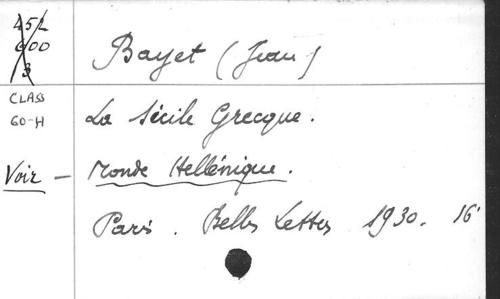 452
600
13
Bayet (Jean)
CLASS
60-H
La Sicile Grecque.
Voir - Monde Hellénique.
Paris. Belles Lettres 1930. 16°